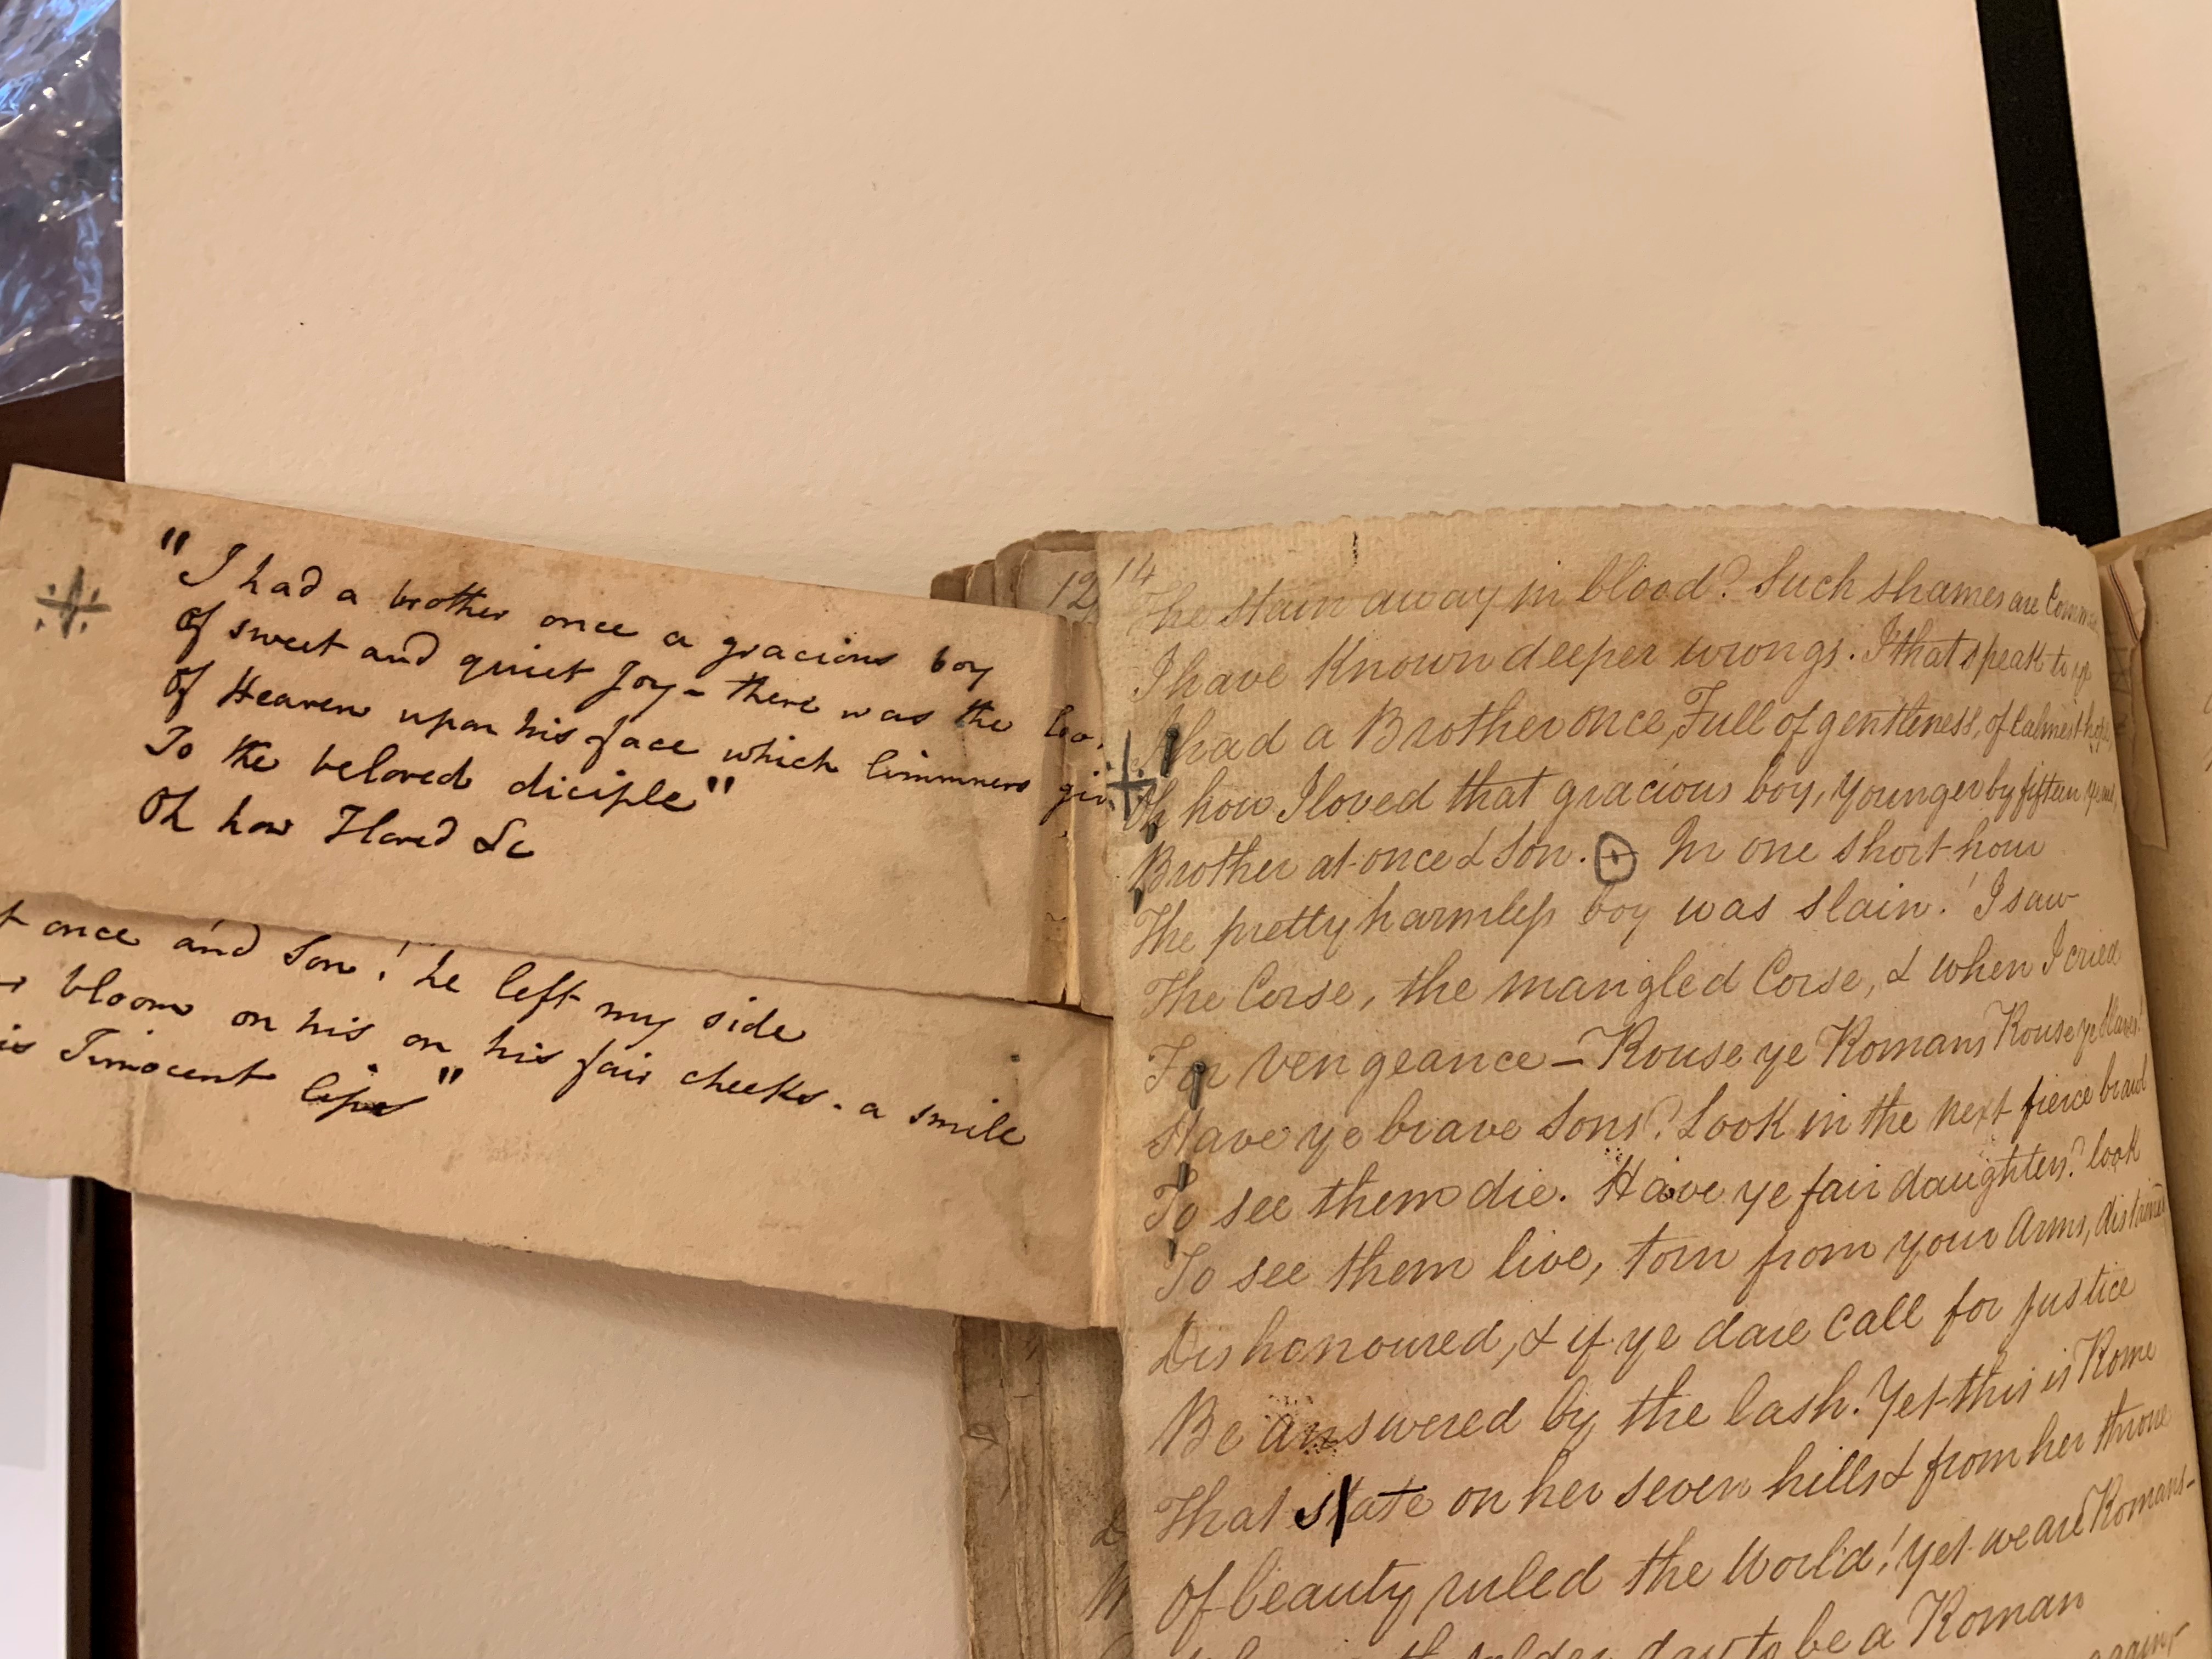 "I had a brother once a gracious boy
Of sweet and quiet Joy - there was the
Of Heaven upon his face which limmners
To the beloved diciple"
Oh how I loved &c
once and Son! he left my side
bloom on his on his fair cheeks - a smile
Innocent lips"
12
14
The stain away in blood? Such shames are
I have known deeper wrongs. I that speak to
I had a Brother once, Full of gentleness, of calmest
Oh how I loved that gracious boy, younger by fifteen
Brother at once & Son. In one short hour
The pretty harmless boy was slain! I saw
The Corse, the mangled Corse, & when I cried
For vengeance - Rouse ye Romans Rouse ye Slaves!
Have ye brave Sons? Look in the next fierce brawl
To see them die. Have ye fair daughters? look
To see them live, torn from your Arms, distained
Dishonoured, & if ye dare Call for justice
Be answered by the lash. Yet this is Rome
That sate on her seven hills & from her throne
Of beauty ruled the World! Yet we are Romans-
day to be a Roman